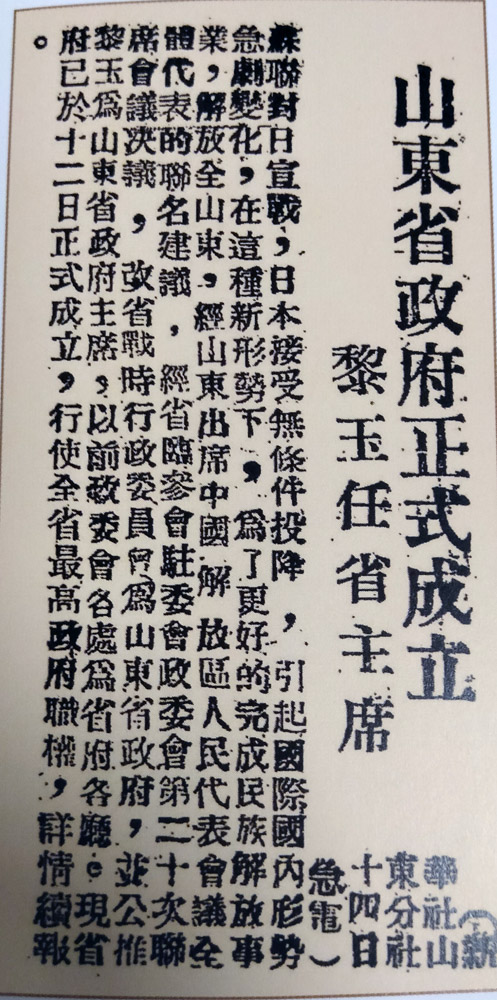 山東省政府正式成立
黎玉任省主席
(新
華社山
東分社
十四日
急電)
蘇聯對日宣戰,日本接受無條件投降,引起國際國內形勢
急劇變化,在這種新形勢下,爲了更好的完成民族解放事
業,解放全山東,經山東出席中國解放區人民代表會議全
體代表的聯名建議,經省臨參會駐委會政委會第二十次聯
席會議决議,改省戰時行政委員會爲山東省政府,並公推
黎玉爲山東省政府主席,以前政委會各處爲省府各廳。現省
府已於十二日正式成立,行使全省最高政府職權,詳情續報
。